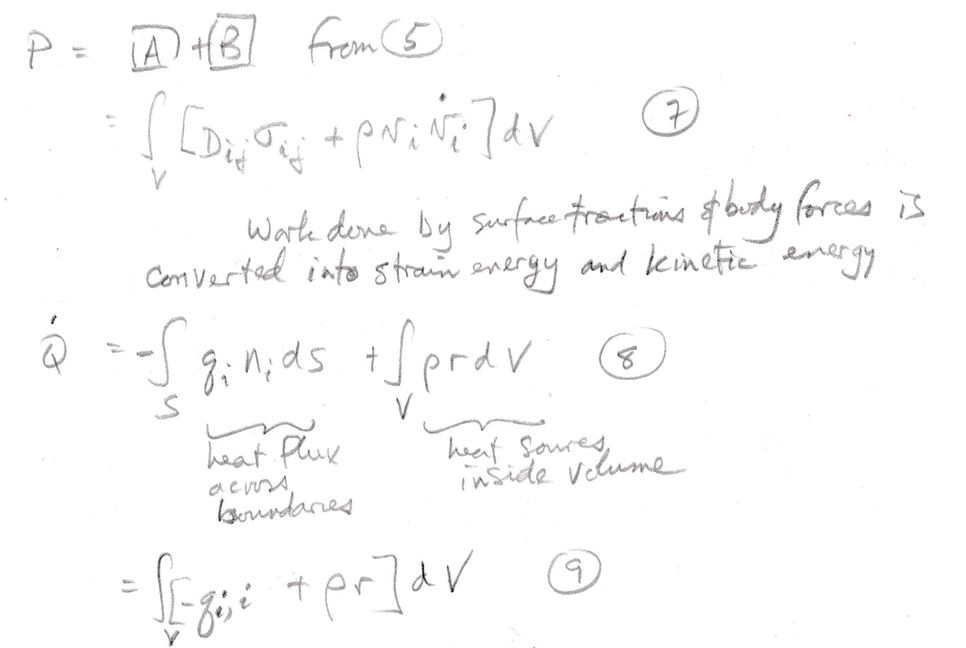 P = [A] + [B] from (5)
= ∫_V [D_ij σ_ij + ρ v_i v̇_i] dV (7)
Work done by surface tractions & body forces is
converted into strain energy and kinetic energy
Q̇ = -∫_S q_i n_i ds + ∫_V ρ r dV (8)
heat flux heat sources
across inside volume
boundaries
= ∫_V [-q_i,i + ρ r] dV (9)